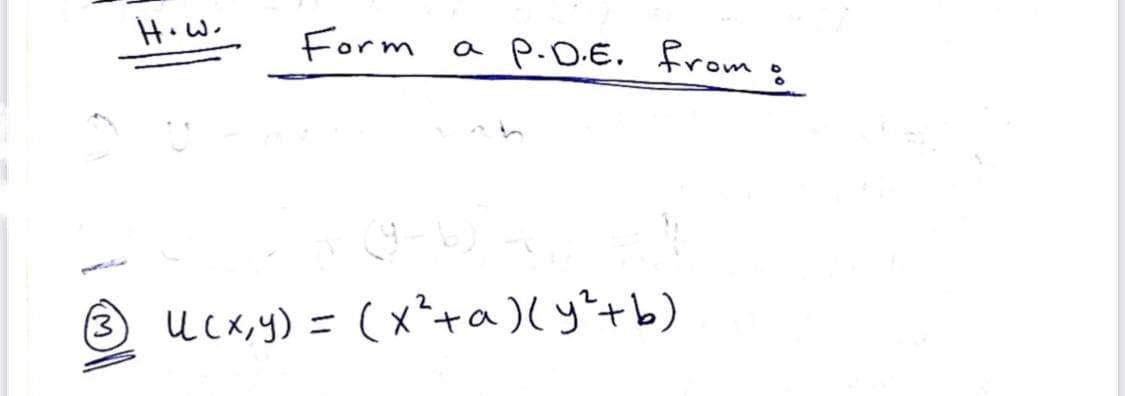 H.W. Form a P.D.E. from :
③ u(x,y) = (x²+a)(y²+b)